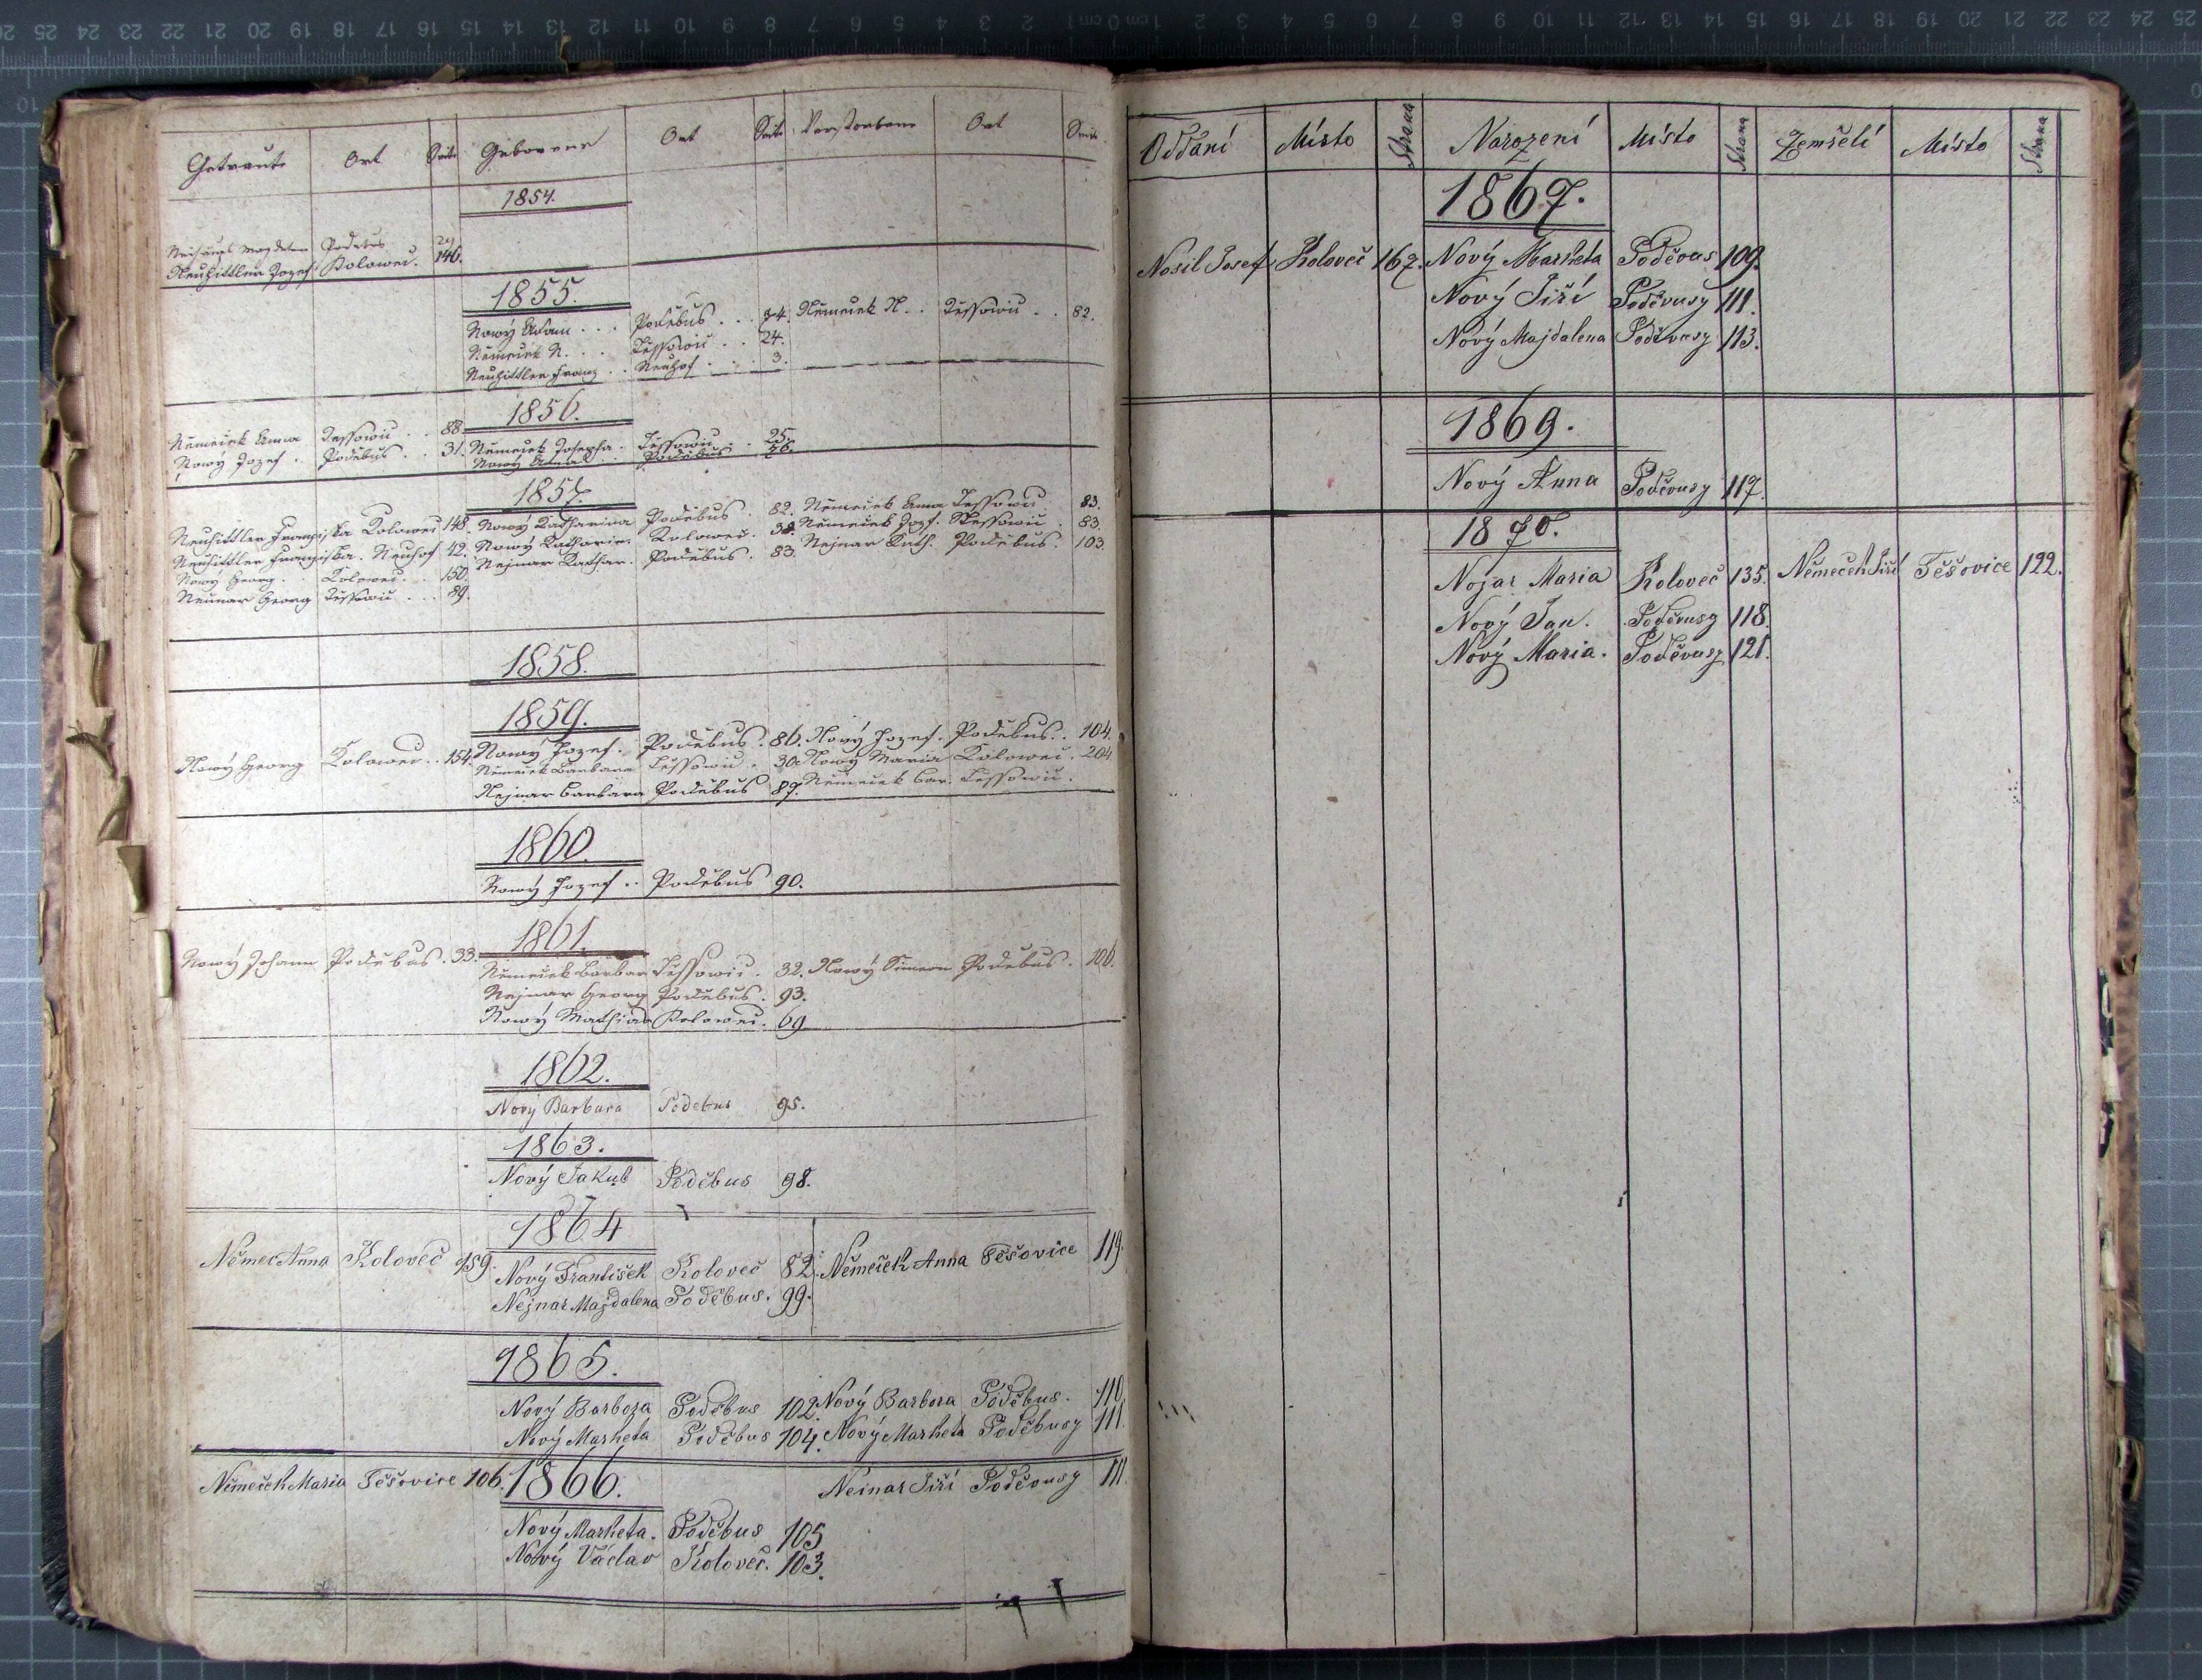 Getraute Ort Seite Geborene Ort Seite Verstorbene Ort Seite
1854.
Podebus
Neuhittler Jozef Kolowec. 146.
1855.
Nowy Adam . . . Podebus . . . 84. Nemecek N. . . Tessowic . . 82.
Nemecek N. . . Tessowic . . 24.
Neuhittler Franz . . Neuhof . . . 3.
1856.
Nemecek Anna Tessowic . . 88.
Nowy Jozef . Podebus . . 31. Nemecek Josepha . Tessowic . . 25.
Nowy Podebus
1857.
Neuhittler Franziska Kolowec 148. Nowy Katharina Podebus . 82. Nemecek Anna Tessowic 83.
Neuhittler Franziska . Neuhof 42. Nowy Katharin. Kolowec . 38. Nemecek Jozf. Tessowic . 83.
Nowy Georg . . Kolowec . . 150. Nejnar Kathar. Podebus . 83. Nejnar Kath. Podebus . 103.
Neunar Georg Tessowic . . . 89.
1858.
1859.
Nowý Georg Kolowec . . 154. Nowy Jozef . Podebus . 86. Nowý Jozef . Podebus . . 104.
Nemecek Barbara Tessowic . 30. Nowý Maria Kolowec . 204
Nejnar Barbara Podebus 87. Nemecek Bar. Tessowic .
1860.
Nowý Jozef . . Podebus 90.
1861.
Nowý Johann Podebus . 33.
Nemecek Barbar Tessowic . 32. Nowý Simeon Podebus . 106.
Nejnar Georg Podebus . 93.
Nowý Mathias Kolowec . 69
1862.
Nový Barbara Podebus 95.
1863.
Nový Jakub Poděbus 98.
1864
Němec Anna Koloveč 159.
Nový František Koloveč 82. Němeček Anna Těšovice 119.
Nejnar Majdalena Poděbus. 99.
1865.
Nový Barbora Poděbus 102. Nový Barbora Poděbus. 110.
Nový Marketa Poděbus 104. Nový Marketa Poděbusy 111.
Němeček Maria Těšovice 106. 1866. Neinar Jiří Poděvusy 111.
Nový Marketa. Poděbus 105
Nový Václav Koloveč. 103.
Oddaní Místo Strana Narození Místo Strana Zemřelí Místo Strana
1867.
Nosil Josef Koloveč 167. Nový Marketa Poděvus 109.
Nový Jiří Poděvusy 111.
Nový Majdalena Poděvusy 113.
1869.
Nový Anna Poděvusy 117.
1870.
Nojar Maria Koloveč 135. Němeček Jiří Těšovice 122.
Nový Jan. Poděvusy 118.
Nový Maria. Poděvusy 121.